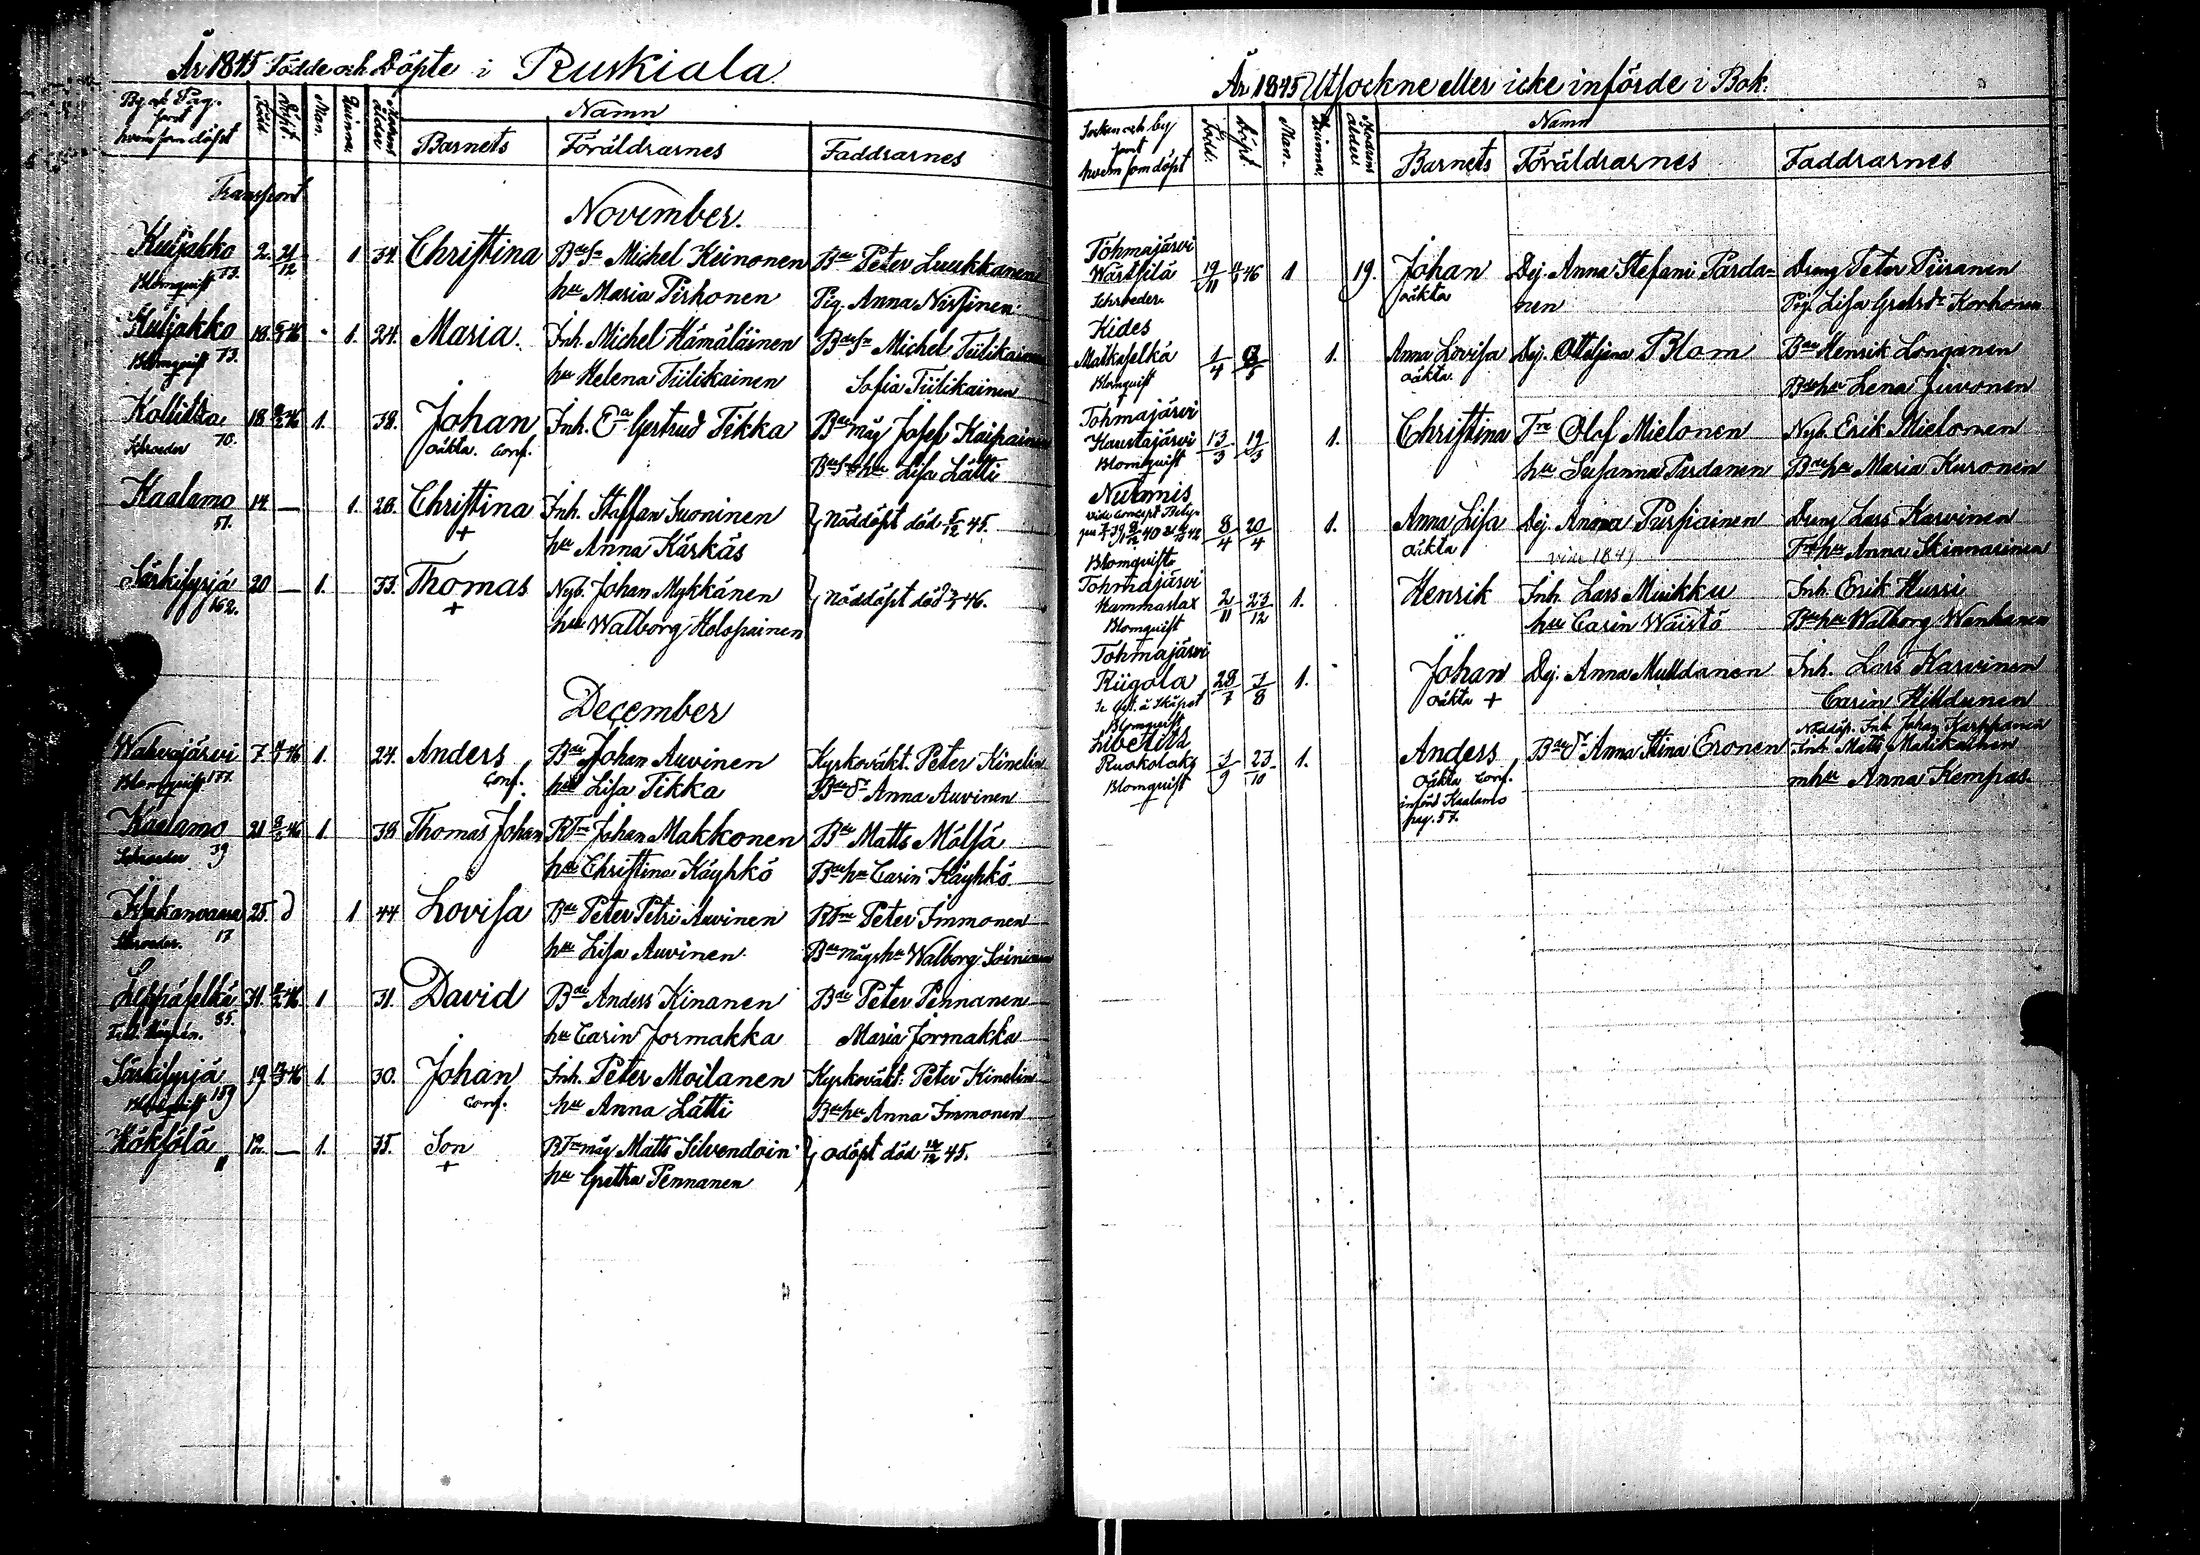 År 1845 Födde och Döpte i Ruskiala
By och Pag. samt hvem som döpt
Född
Döpt
Man.
Quinna
Modrens ålder
Namn
Barnets
Föräldrarnes
Faddrarnes
Transport
November.
Kuljakko 2. 21/12 1 34. Christina Bde Sn Michel Keinonen Bde Peter Luukkanen
Blomquist 73. hu Maria Pirhonen Pig. Anna Nissinen
Kuljakko 18. 46 1. 24. Maria. Inh. Michel Hämäläinen Bde Sn Michel Tiilikainen
Blomquist 73. hu Helena Tiilikainen Sofia Tiilikainen
18 46 1. 38. Johan Inh. Ea Gertrud Tikka Bde måg Josef Kaipainen
Schroeder 70. oäkta. conf. hu Lisa Lätti
Kaalamo 14 — 1. 28. Christina Inh. Staffan Suoninen } Nöddöpt död 5/12 45.
51. + hu Anna Kärkäs
Särkisyrjä 20 — 1. 33. Thomas Nyb. Johan Mykkänen } Nöddöpt död 46.
162. + hu Walborg Holopainen
December
7 46 1. 24. Anders Bde Johan Auvinen Kyrkoväkt. Peter Kinelin
Blomquist conf. hu Lisa Tikka Bde Dr Anna Auvinen
Kaalamo 21 46 1. 38 Thomas Johan RTre Johan Makkonen Bde Matts Mölsä
Schroeder 39 hu Christina Käyhkö Bde hu Carin Käyhkö
25. d 1 44 Lovisa Bde Peter Petri Auvinen RTre Peter Immonen
Schroeder. 17 hu Lisa Auvinen Bde mågs hu Walborg
Leppäselkä 31. 46. 1 31. David Bde Anders Kinanen Bde Peter Pennanen
85. hu Carin Jormakka Maria Jormakka
Särkisyrjä 19 46 1. 30. Johan Inh. Peter Moilanen Kyrkoväkt. Peter Kinelin
Blomquist 159 conf. hu Anna Lätti Bde hu Anna Immonen
12. — 1. 35. Son RTre måg Matts Silvendoin } odöpt död 14/12 45.
+ hu Gretha Pennanen
År 1845 Utsockne eller icke införde i Bok.
Socken och by samt hvem som döpt
Född.
Döpt.
Man.
Quinna.
Modrens ålder
Namn
Barnets
Föräldrarnes
Faddrarnes
Tohmajärvi
Wärtsilä 19/11 46 1 19. Johan Dej. Anna Stefani Parda= Dreng Peter Piiranen
Schroeder. oäkta nen Pig Lisa Gretsdr Korhonen
Kides
Matkaselkä 1/4 1. Anna Lovisa Dej. Ottiljana Blom Bde Henrik Longanen
Blomquist oäkta. Bde hu Lena Juvonen
Tohmajärvi
Kaustajärvi 13/3 19/3 1. Christina Tre Olof Mielonen Nyb. Erik Mielonen
Blomquist hu Susanna Pardanen Bde hu Maria Kuronen
Nurmis
8/4 20/4 1. Anna Lisa Dej. Anna Pursiainen Dreng Lars Karvinen
Blomquist oäkta hu Anna Skinnarinen
Tohmajärvi
Hammaslax 2/11 23/12 1. Henrik Inh. Lars Mirikku Inh. Erik Hurri
Blomquist hu Carin Waistö Bde hu Walborg Wanhanen
Tohmajärvi
Riigola 28/7 7/8 1. Johan Dej. Anna Mulldanen Inh. Lars Karvinen
Blomquist oäkta + Carin Hilldunen
Libelits Nöddöp. Inh Johan Karhhanen
Ruokolaks 3/9 23/10 1. Anders Bde Dr Anna Stina Eronen Inh. Matts Matikainen
Blomquist oäkta conf. mhu Anna Kempas
införd Kaalamo
pag. 57.